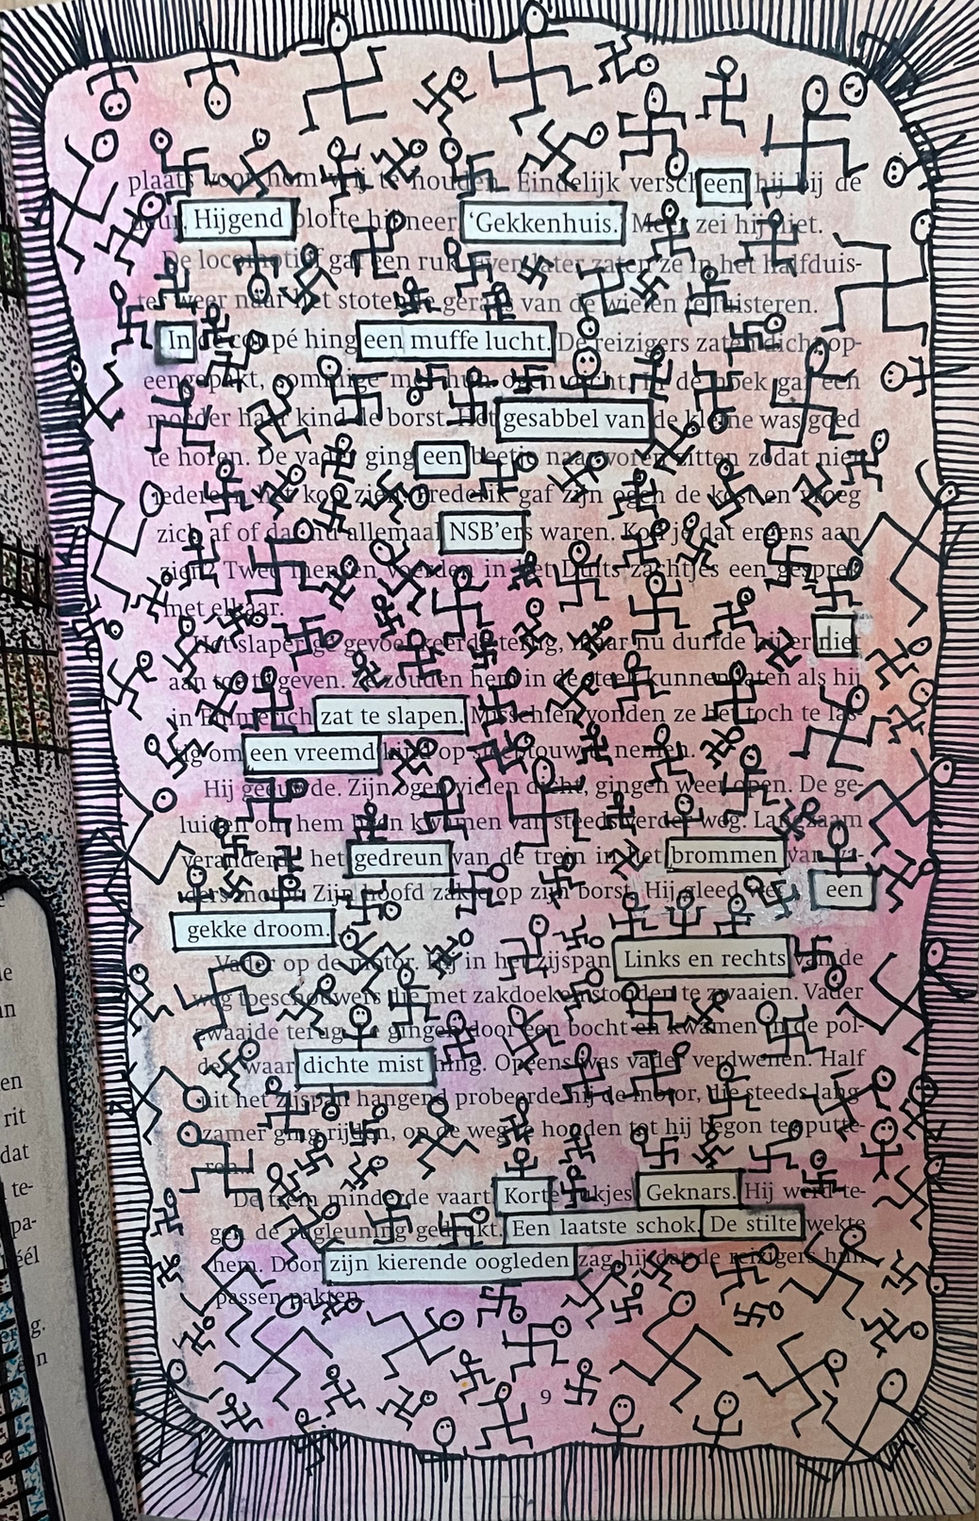 plaats voor hom vrij te houden. Eindelijk verscheen hij bij de
deur. Hijgend plofte hij neer. ‘Gekkenhuis.’ Meer zei hij niet.
De locomotief gaf een ruk. Even later zaten ze in het halfduis-
ter weer naar het stotende geraas van de wielen te luisteren.
In de coupé hing een muffe lucht. De reizigers zaten dicht op-
eengepakt, sommige met hun ogen dicht. In de hoek gaf een
moeder haar kind de borst. Het gesabbel van de kleine was goed
te horen. De vader ging een beetje naar voren zitten zodat niet
iedereen het kon zien. Frederik gaf zijn ogen de kost en vroeg
zich af of dat nu allemaal NSB’ers waren. Kon je dat ergens aan
zien? Twee mensen voerden in het Duits zachtjes een gesprek
met elkaar.
Het slaperige gevoel keerde terug, maar nu durfde hij er niet
aan toe te geven. Ze zouden hem in de steek kunnen laten als hij
in Emmerich zat te slapen. Misschien vonden ze het toch te las-
tig om een vreemd kind op sleeptouw te nemen.
Hij geeuwde. Zijn ogen vielen dicht, gingen weer open. De ge-
luiden om hem heen kwamen van steeds verder weg. Langzaam
veranderde het gedreun van de trein in het brommen van va-
ders motor. Zijn hoofd zakte op zijn borst. Hij gleed weg een
gekke droom.
Vader op de motor. Hij in het zijspan. Links en rechts van de
weg toeschouwers die met zakdoeken stonden te zwaaien. Vader
zwaaide terug. Ze gingen door een bocht en kwamen in de pol-
der waar dichte mist hing. Opeens was vader verdwenen. Half
uit het zijspan hangend probeerde hij de motor, die steeds lang-
zamer ging rijden, op de weg te houden tot hij begon te sputte-
ren.
De trein minderde vaart. Korte rukjes. Geknars. Hij werd te-
gen de rugleuning gedrukt. Een laatste schok. De stilte wekte
hem. Door zijn kierende oogleden zag hij dat de reizigers hun
passen pakten.
9
en
rit
dat
te-